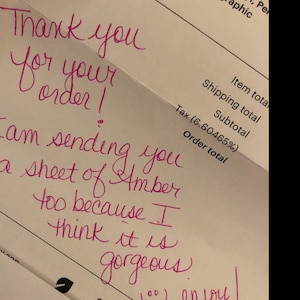 Thank you
for your
order!
I am sending you
a sheet of Amber
too because I
think it is
gorgeous
enjoy!
graphic
Item total
Shipping total
Subtotal
Tax (6.60465%)
Order total